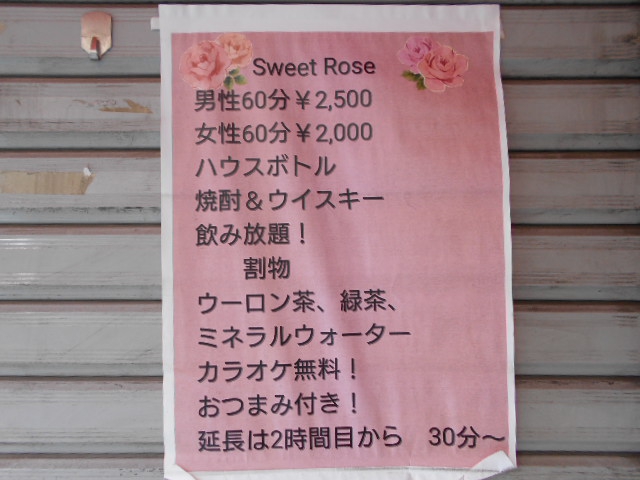 Sweet Rose
男性60分￥2,500
女性60分￥2,000
ハウスボトル
焼酎＆ウイスキー
飲み放題！
割物
ウーロン茶、緑茶、
ミネラルウォーター
カラオケ無料！
おつまみ付き！
延長は2時間目から　30分～